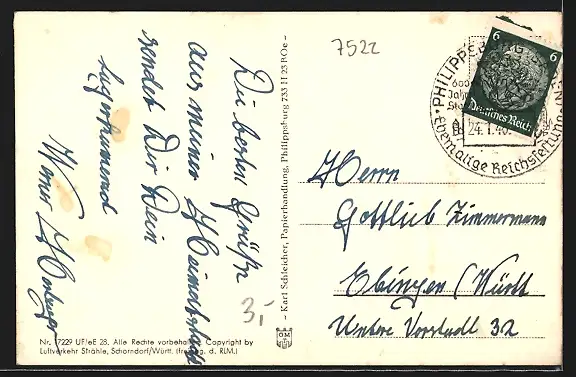 Die besten Grüße
aus meiner Heimatstadt
sendet Dir Dein
Jugendfreund
Werner
Nr. 17229 UF/eE 28. Alle Rechte vorbehalten. Copyright by
Luftverkehr Strähle, Schorndorf/Württ. (freigeg. d. RLM.)
— Karl Schleicher, Papierhandlung, Philippsburg 733 H 23 ROe —
3,-
OM
7522
PHILIPPSBURG
24.1.40
Ehemalige Reichsfestung
6 6
Deutsches Reich
Herrn
Gottlieb Zimmermann
Ebingen / Württ
Untere Vorstadt 32